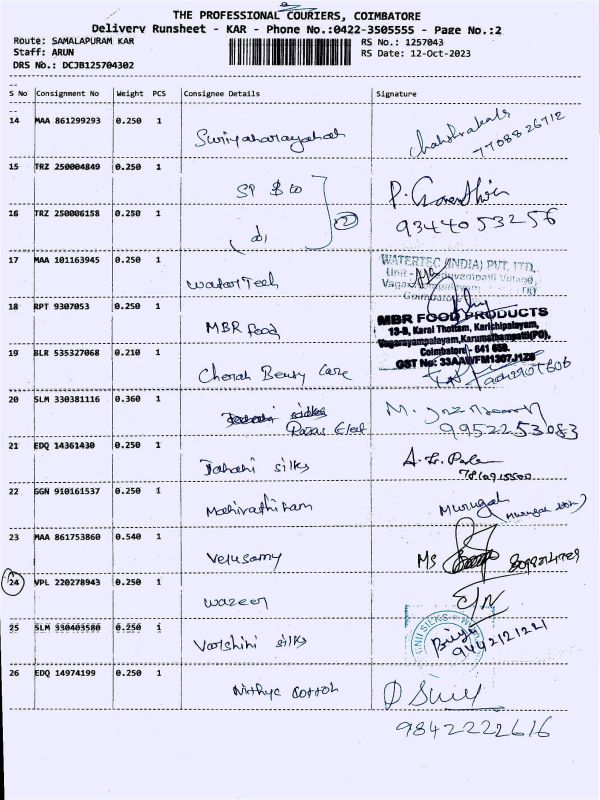 THE PROFESSIONAL COURIERS, COIMBATORE
Delivery Runsheet - KAR - Phone No.:0422-3505555 - Page No.:2
Route: SAMALAPURAM KAR RS No.: 1257043
Staff: ARUN RS Date: 12-Oct-2023
DRS No.: DCJB125704302
S No Consignment No Weight PCS Consignee Details Signature
14 MAA 861299293 0.250 1
7708826712
15 TRZ 250004849 0.250 1
SP & co P.
16 TRZ 250006158 0.250 1 2 9344053256
do
17 MAA 101163945 0.250 1 WATERTEC (INDIA) PVT. LTD.,
WaterTech Coimbatore
18 RPT 9307053 0.250 1
MBR food MBR FOOD PRODUCTS
13-B, Karai Thottam, Karichipalayam,
Vagarayampalayam, Karumathampatti(PO),
19 BLR 535327068 0.210 1 Coimbatore - 641 659.
GST No: 33AAWFM1307J1Z6
Care
20 SLM 330381116 0.360 1 M.
9952253083
21 EDQ 14361430 0.250 1
silks 7810915500
22 GGN 910161537 0.250 1
Murugah
23 MAA 861753860 0.540 1
Velusamy Ms
24 VPL 220278943 0.250 1
wazeer
25 SLM 330403580 0.250 1
Varshini silks 9442121221
26 EDQ 14974199 0.250 1
Nithya cotton
9842222616